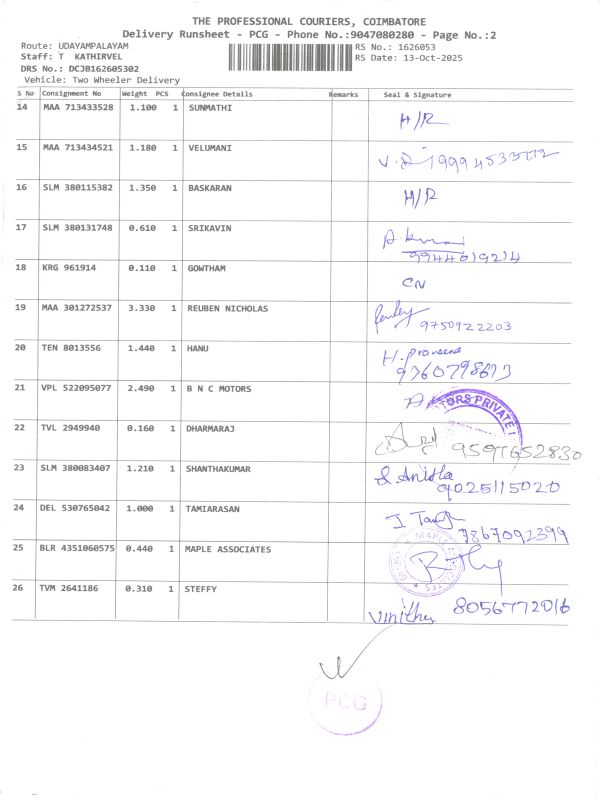 THE PROFESSIONAL COURIERS, COIMBATORE
Delivery Runsheet - PCG - Phone No.:9047080280 - Page No.:2
Route: UDAYAMPALAYAM RS No.: 1626053
Staff: T KATHIRVEL RS Date: 13-Oct-2025
DRS No.: DCJB162605302
Vehicle: Two Wheeler Delivery
S No Consignment No Weight PCS Consignee Details Remarks Seal & Signature
14 MAA 713433528 1.100 1 SUNMATHI H/R
15 MAA 713434521 1.180 1 VELUMANI
16 SLM 380115382 1.350 1 BASKARAN H/R
17 SLM 380131748 0.610 1 SRIKAVIN
9944619214
18 KRG 961914 0.110 1 GOWTHAM CN
19 MAA 301272537 3.330 1 REUBEN NICHOLAS 9750922203
20 TEN 8013556 1.440 1 HANU H. praveena
9360798673
21 VPL 522095077 2.490 1 B N C MOTORS
TORS PRIVATE
22 TVL 2949940 0.160 1 DHARMARAJ 9597652830
23 SLM 380083407 1.210 1 SHANTHAKUMAR Anistla
9025115020
24 DEL 530765042 1.000 1 TAMIARASAN
7867092399
25 BLR 4351060575 0.440 1 MAPLE ASSOCIATES
MAPLE
26 TVM 2641186 0.310 1 STEFFY 8056772016
Vinitha
PCG